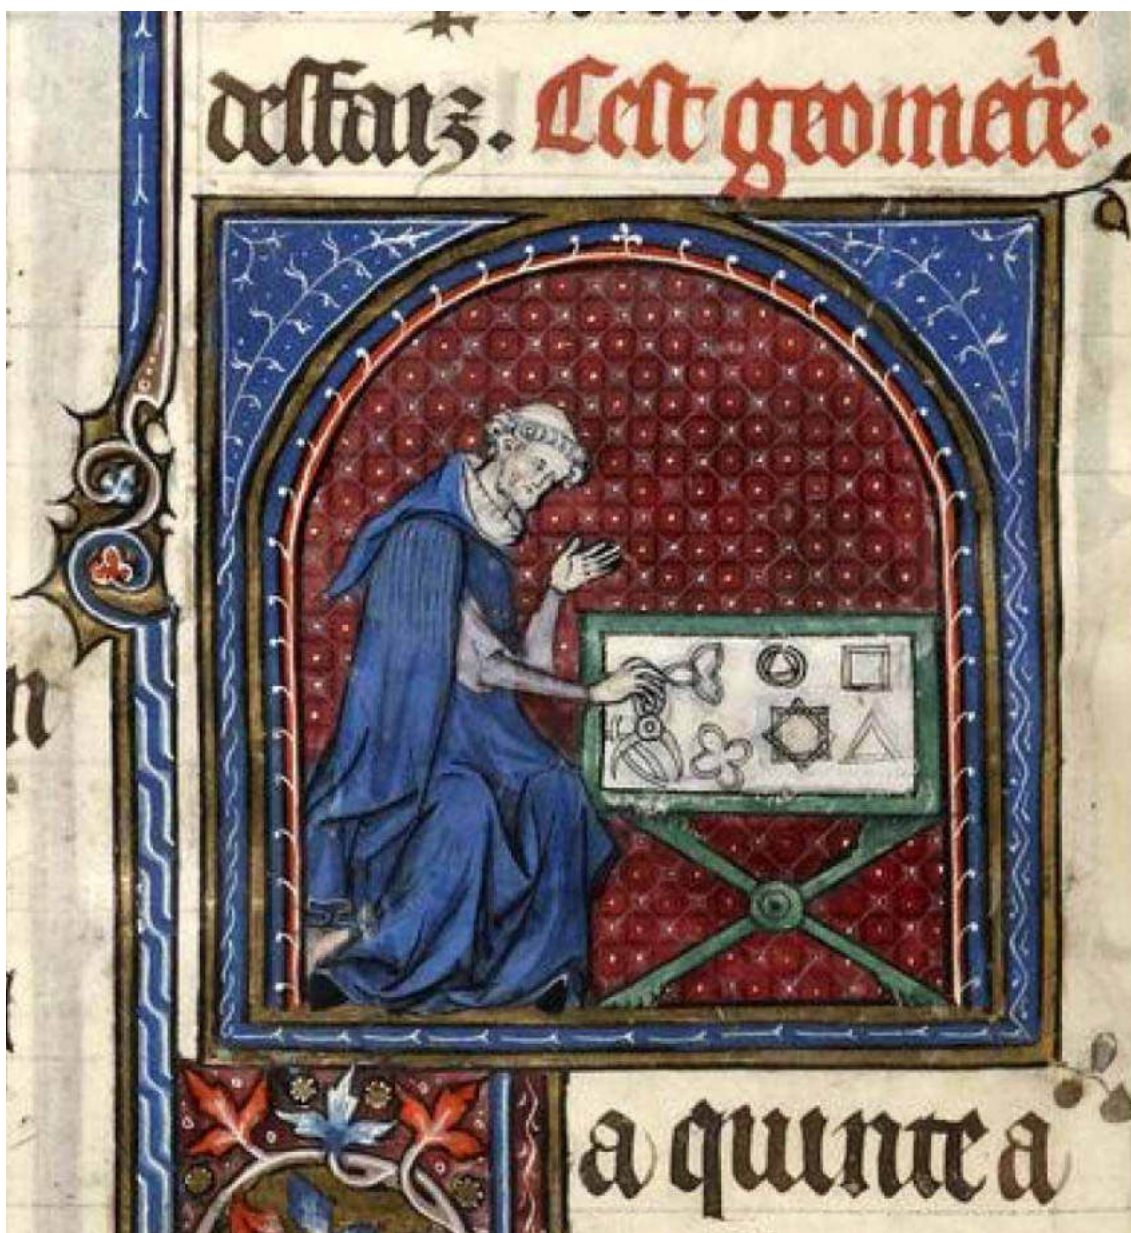 desfaiz. Cest geometⁱe.
n
a quinte a